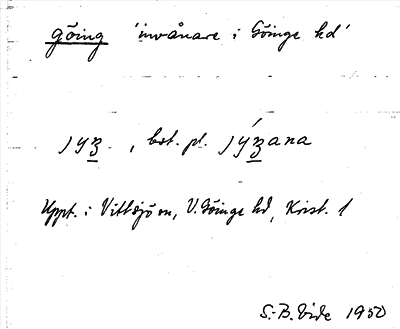 göing 'invånare i Göinge hd'
jyʒ. , best. pl. jýʒana
Uppt. i Vittsjö sn, V. Göinge hd, Krist. l
S.-B. Vide 1950